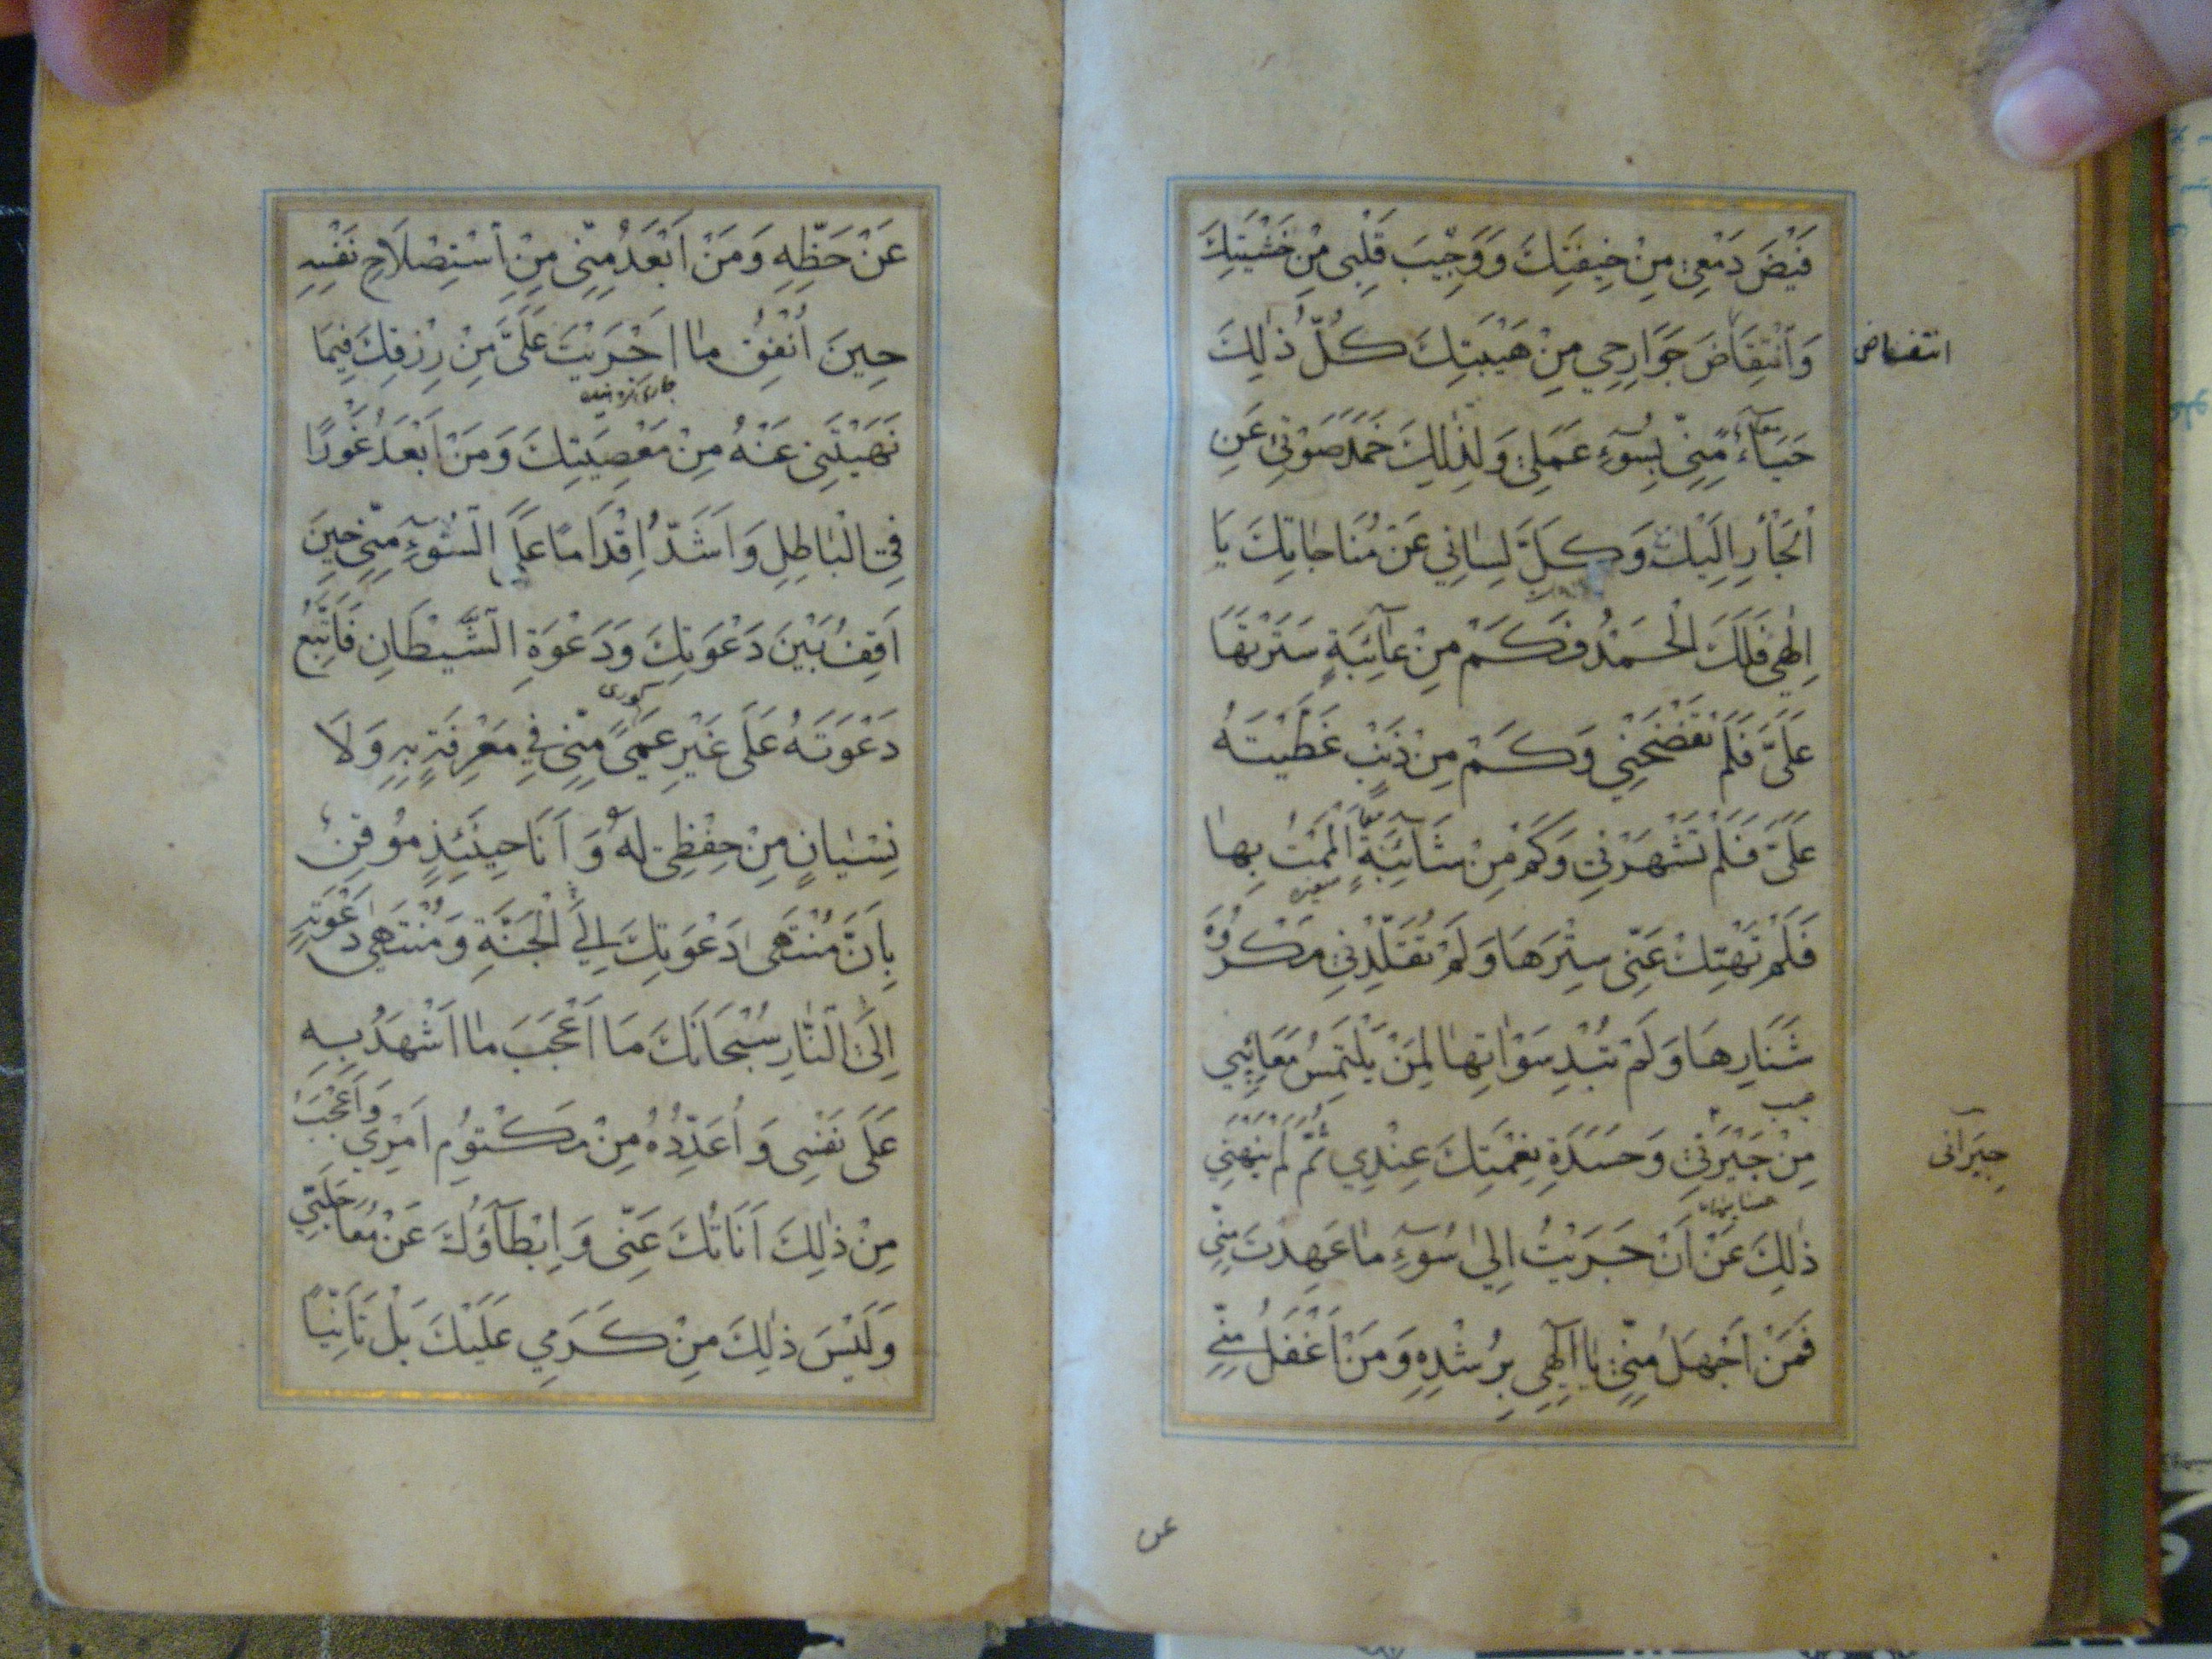 فَيْضَ دَمْعِي مِنْ خِيفَتِكَ وَوَجِيبَ قَلْبِي مِنْ خَشْيَتِكَ
وَانْتِفَاضَ جَوَارِحِي مِنْ هَيْبَتِكَ كُلُّ ذٰلِكَ
انتفاض
حَيَاءً مِنِّي بِسُوءِ عَمَلِي وَلِذٰلِكَ خَمَدَ صَوْتِي عَنِ
الْجَأْرِ اِلَيْكَ وَكَلَّ لِسَانِي عَنْ مُنَاجَاتِكَ يَا
اِلٰهِي فَلَكَ الْحَمْدُ فَكَمْ مِنْ عَآئِبَةٍ سَتَرْتَهَا
عَلَيَّ فَلَمْ تَفْضَحْنِي وَكَمْ مِنْ ذَنْبٍ غَطَّيْتَهُ
عَلَيَّ فَلَمْ تَشْهَرْنِي وَكَمْ مِنْ شَآئِبَةٍ اَلْمَمْتُ بِهَا
فَلَمْ تَهْتِكْ عَنِّي سِتْرَهَا وَلَمْ تُقَلِّدْنِي مَكْرُوهَ
شَنَارِهَا وَلَمْ تُبْدِ سَوْاٰتِهَا لِمَنْ يَلْتَمِسُ مَعَايِبِي
مِنْ جِيْرَتِي وَحَسَدَةِ نِعْمَتِكَ عِنْدِي ثُمَّ لَمْ يَنْهَنِي
جِيرَانی
ذٰلِكَ عَنْ اَنْ جَرَيْتُ اِلىٰ سُوٓءِ مَا عَهِدْتَ مِنِّي
فَمَنْ اَجْهَلُ مِنِّي يَا اِلٰهِي بِرُشْدِهِ وَمَنْ اَغْفَلُ مِنِّي
عن
عَنْ حَظِّهِ وَمَنْ اَبْعَدُ مِنِّي مِنْ اسْتِصْلَاحِ نَفْسِهِ
حِينَ اُنْفِقُ مَا اَجْرَيْتَ عَلَيَّ مِنْ رِزْقِكَ فِيمَا
نَهَيْتَنِي عَنْهُ مِنْ مَعْصِيَتِكَ وَمَنْ اَبْعَدُ غَوْرًا
فِي الْبَاطِلِ وَاَشَدُّ اِقْدَامًا عَلَى السُّوٓءِ مِنِّي حِينَ
اَقِفُ بَيْنَ دَعْوَتِكَ وَدَعْوَةِ الشَّيْطَانِ فَاَتَّبِعُ
کوری
دَعْوَتَهُ عَلَى غَيْرِ عَمىً مِنِّي فِي مَعْرِفَةٍ بِهِ وَلَا
نِسْيَانٍ مِنْ حِفْظِي لَهُ وَاَنَا حِينَئِذٍ مُوقِنٌ
بِاَنَّ مُنْتَهٰى دَعْوَتِكَ اِلَى الْجَنَّةِ وَمُنْتَهٰى دَعْوَتِهِ
اِلَى النَّارِ سُبْحَانَكَ مَا اَعْجَبَ مَا اَشْهَدُ بِهِ
عَلَى نَفْسِي وَاُعَدِّدُهُ مِنْ مَكْتُومِ اَمْرِي وَاَعْجَبُ
مِنْ ذٰلِكَ اَنَاتُكَ عَنِّي وَاِبْطَآؤُكَ عَنْ مُعَاجَلَتِي
وَلَيْسَ ذٰلِكَ مِنْ كَرَمِي عَلَيْكَ بَلْ تَاَنِّيًا